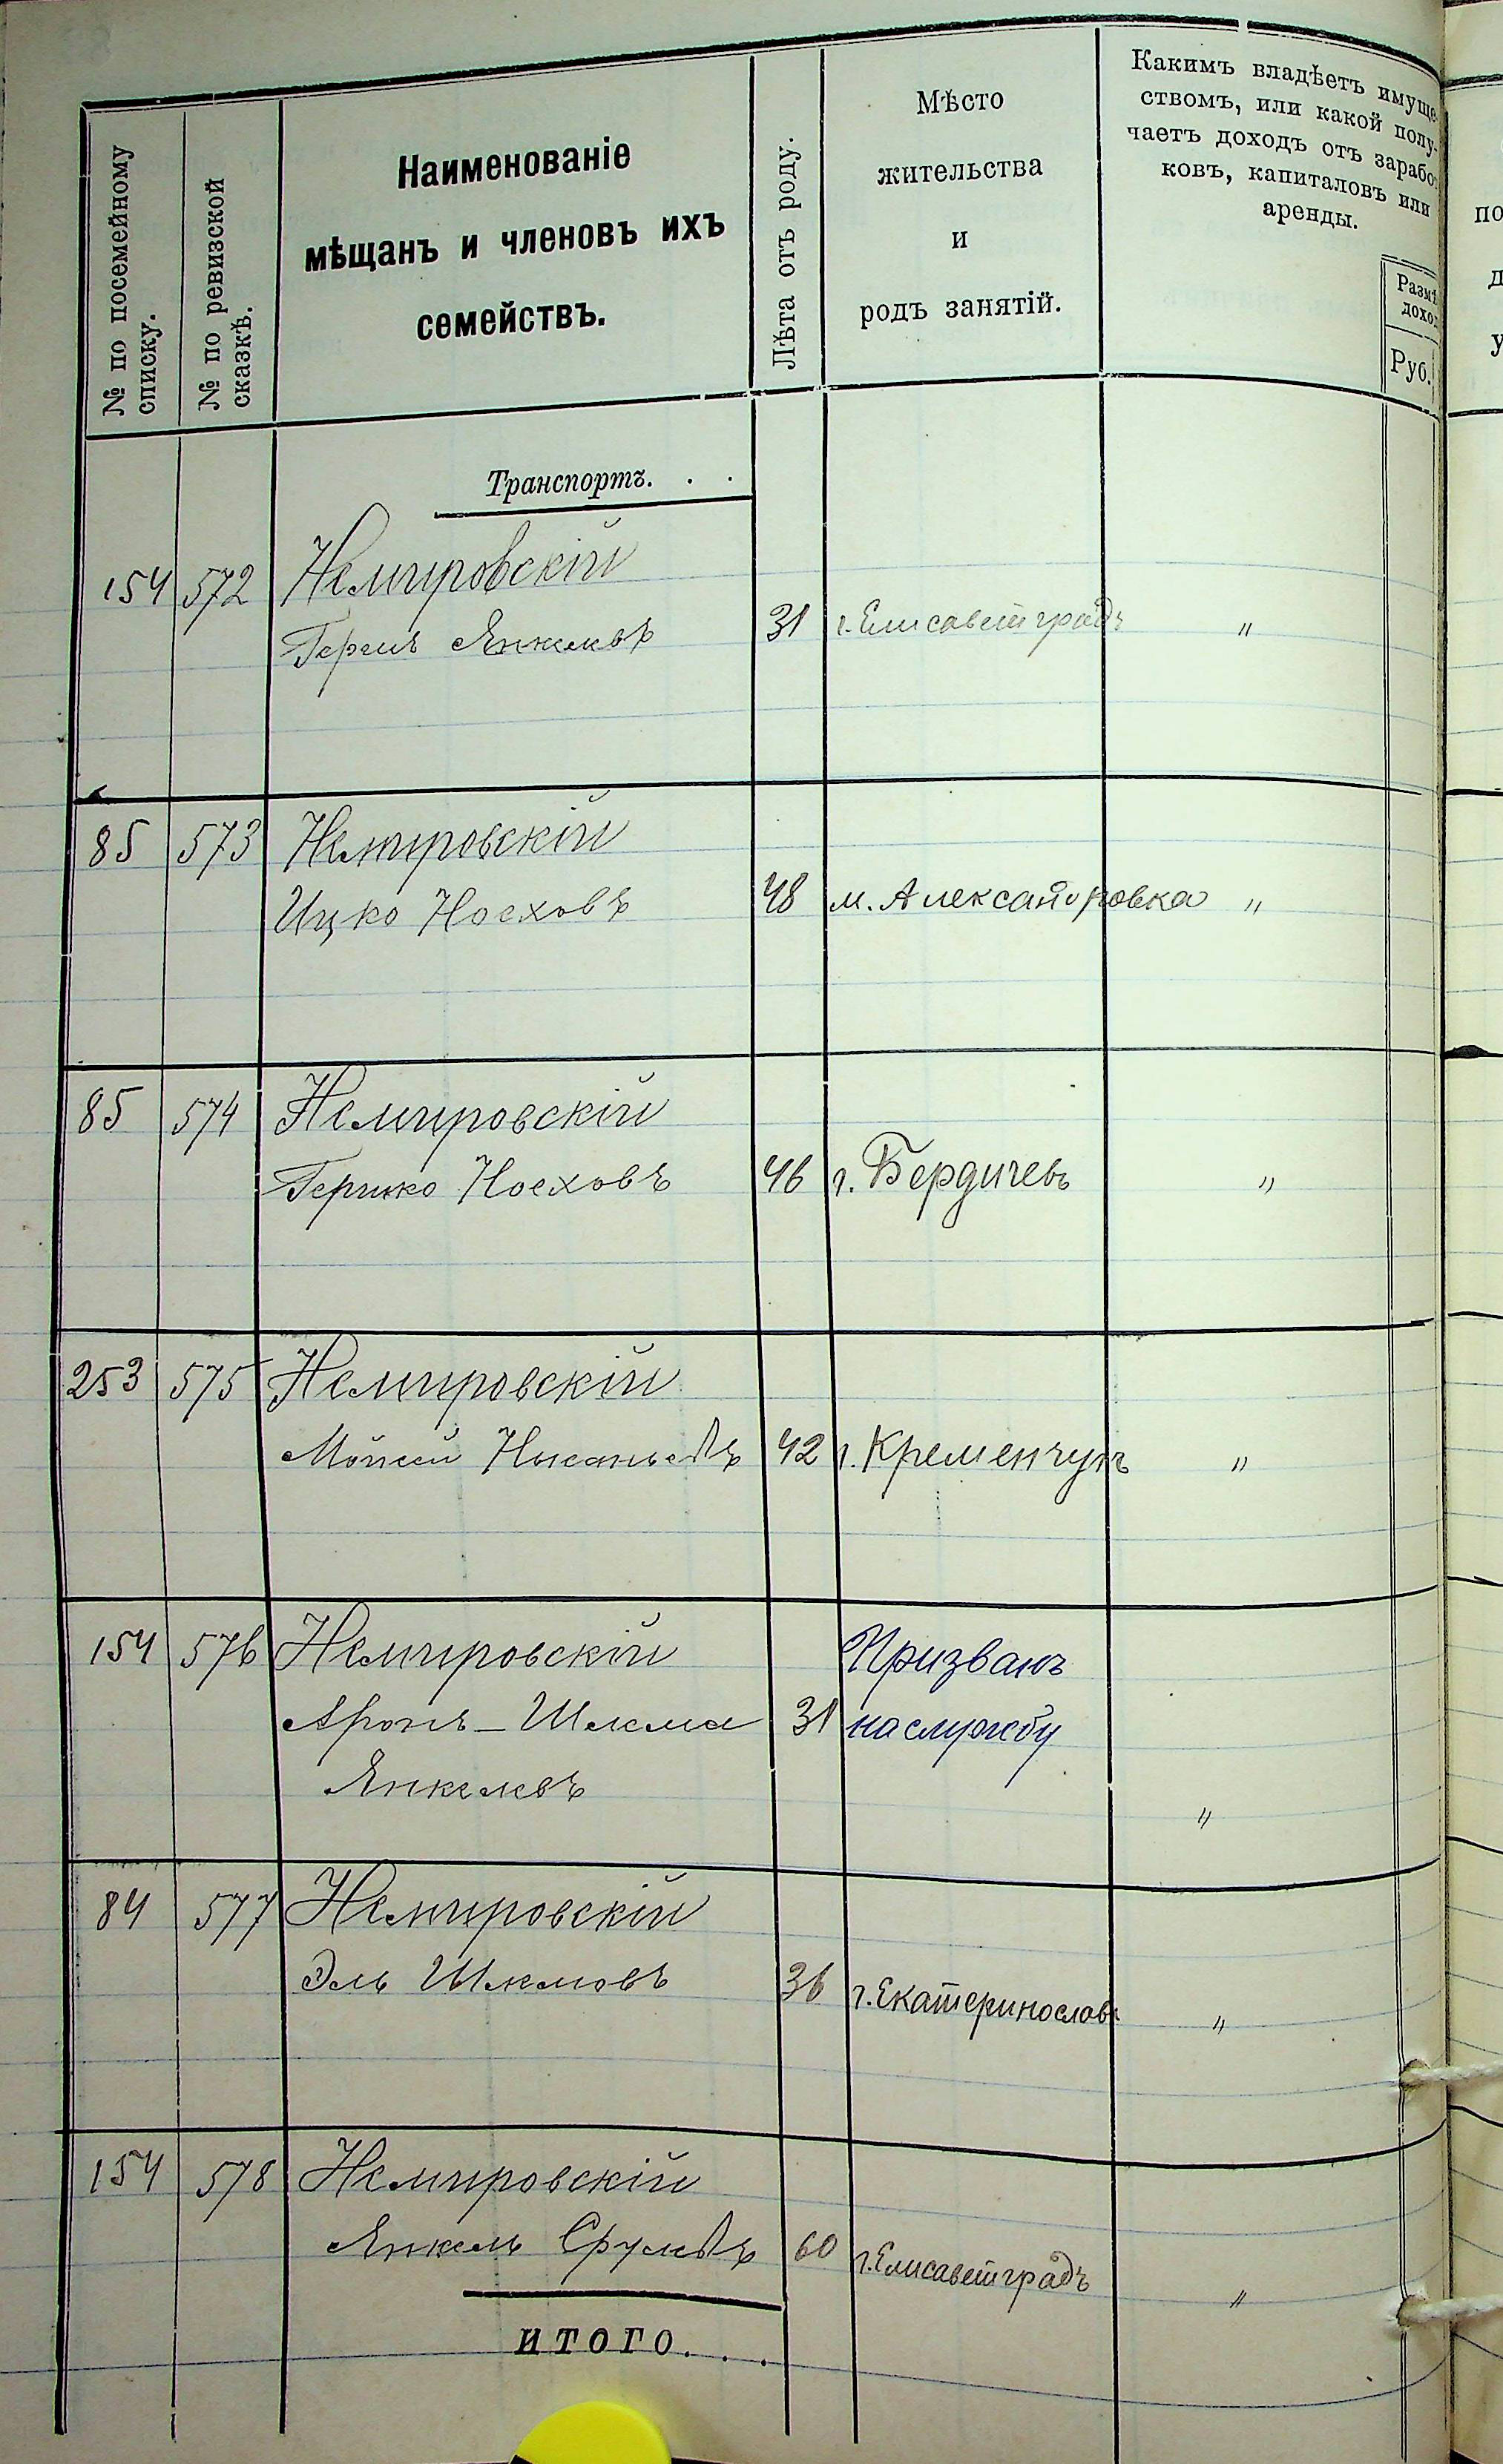 № по посемейному
списку.
№ по ревизской
сказкѣ.
Наименованіе
мѣщанъ и членовъ ихъ
семействъ.
Лѣта отъ роду.
Мѣсто
жительства
и
родъ занятій.
Какимъ владѣетъ имуще-
ствомъ, или какой полу-
чаетъ доходъ отъ зарабо-
ковъ, капиталовъ или
аренды.
Размѣ
доход
Руб.
Транспортъ. . .
154 572 Немировскій
Гершъ Янкелевъ 31 г. Елисаветградъ "
85 573 Немировскій
Ицко Ноеховъ 48 м. Александровка "
85 574 Немировскій
Гершко Ноеховъ 46 г. Бердичевъ "
253 575 Немировскій
Мойсей Нысаньевъ 42 г. Кременчугъ "
154 576 Немировскій Призванъ
Аронъ-Шлема 31 на службу
Янкелевъ "
84 577 Немировскій
Эль Шлемовъ 36 г. Екатеринославъ "
154 578 Немировскій
Янкель Срулевъ 60 г. Елисаветградъ "
ИТОГО. . .